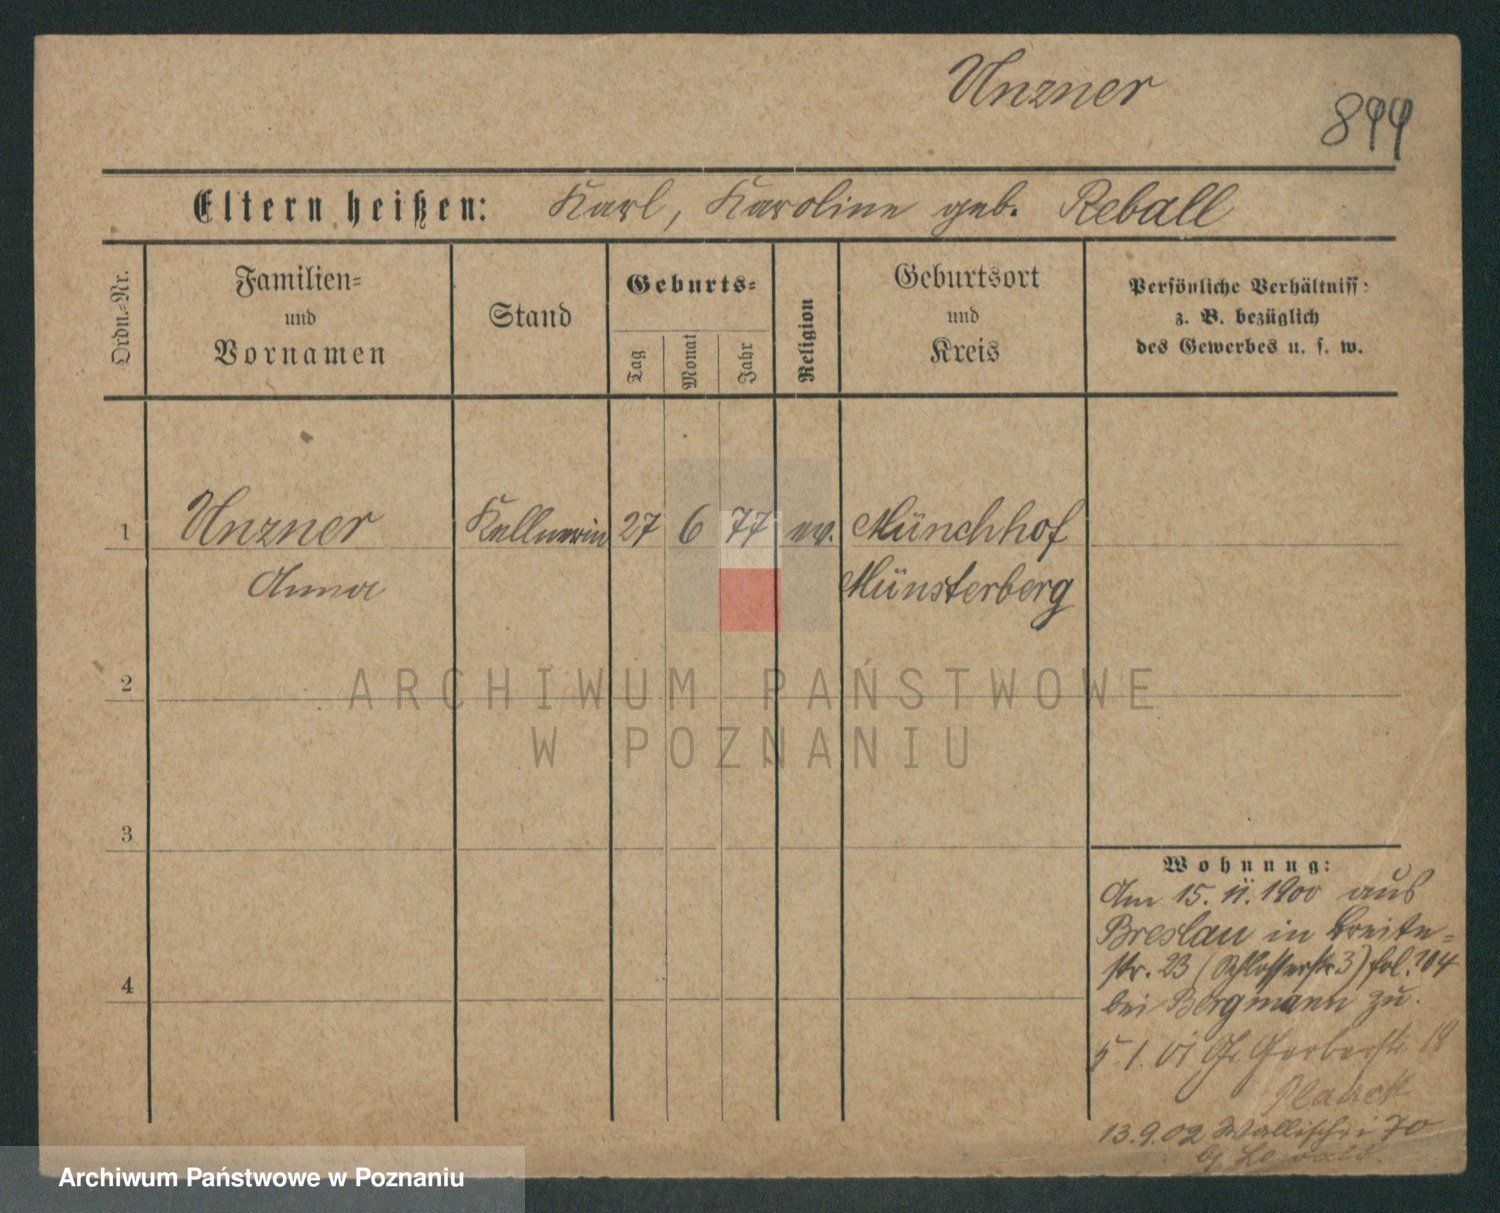 Unzner
899
Eltern heißen: Karl, Karoline geb. Reball
Ordn.-Nr.
Familien-
und
Vornamen
Stand
Geburts-
Tag
Monat
Jahr
Religion
Geburtsort
und
Kreis
Persönliche Verhältniss-
z. B. bezüglich
des Gewerbes u. s. w.
1 Unzner Kellnerin 27 6 77 ev. Münchhof
Anna Münsterberg
2
3
4
Wohnung:
Am 15. 11. 1900 aus
Breslau in Breite-
str. 23 (Schlosserstr. 3) fol. 104
bei Bergmann zu.
5. 1. 01 Gr. Gerberstr. 18
13.9.02 Wallischei 70
ARCHIWUM PAŃSTWOWE
W POZNANIU
Archiwum Państwowe w Poznaniu